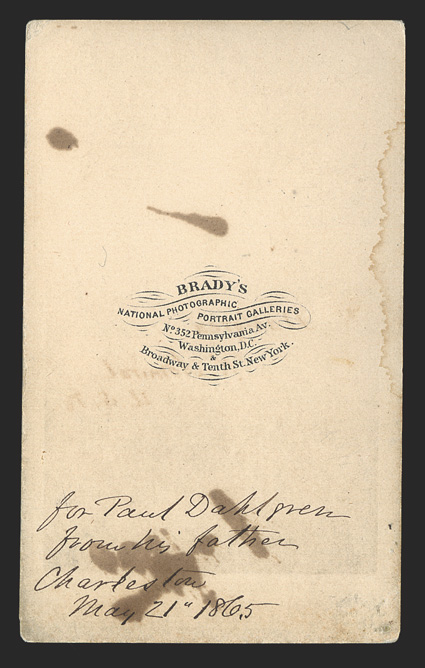 BRADY'S
NATIONAL PHOTOGRAPHIC
PORTRAIT GALLERIES
No 352 Pennsylvania Av.
Washington, D.C.
&
Broadway & Tenth St. New York.
for Paul Dahlgren
from his father
Charleston
May 21" 1865